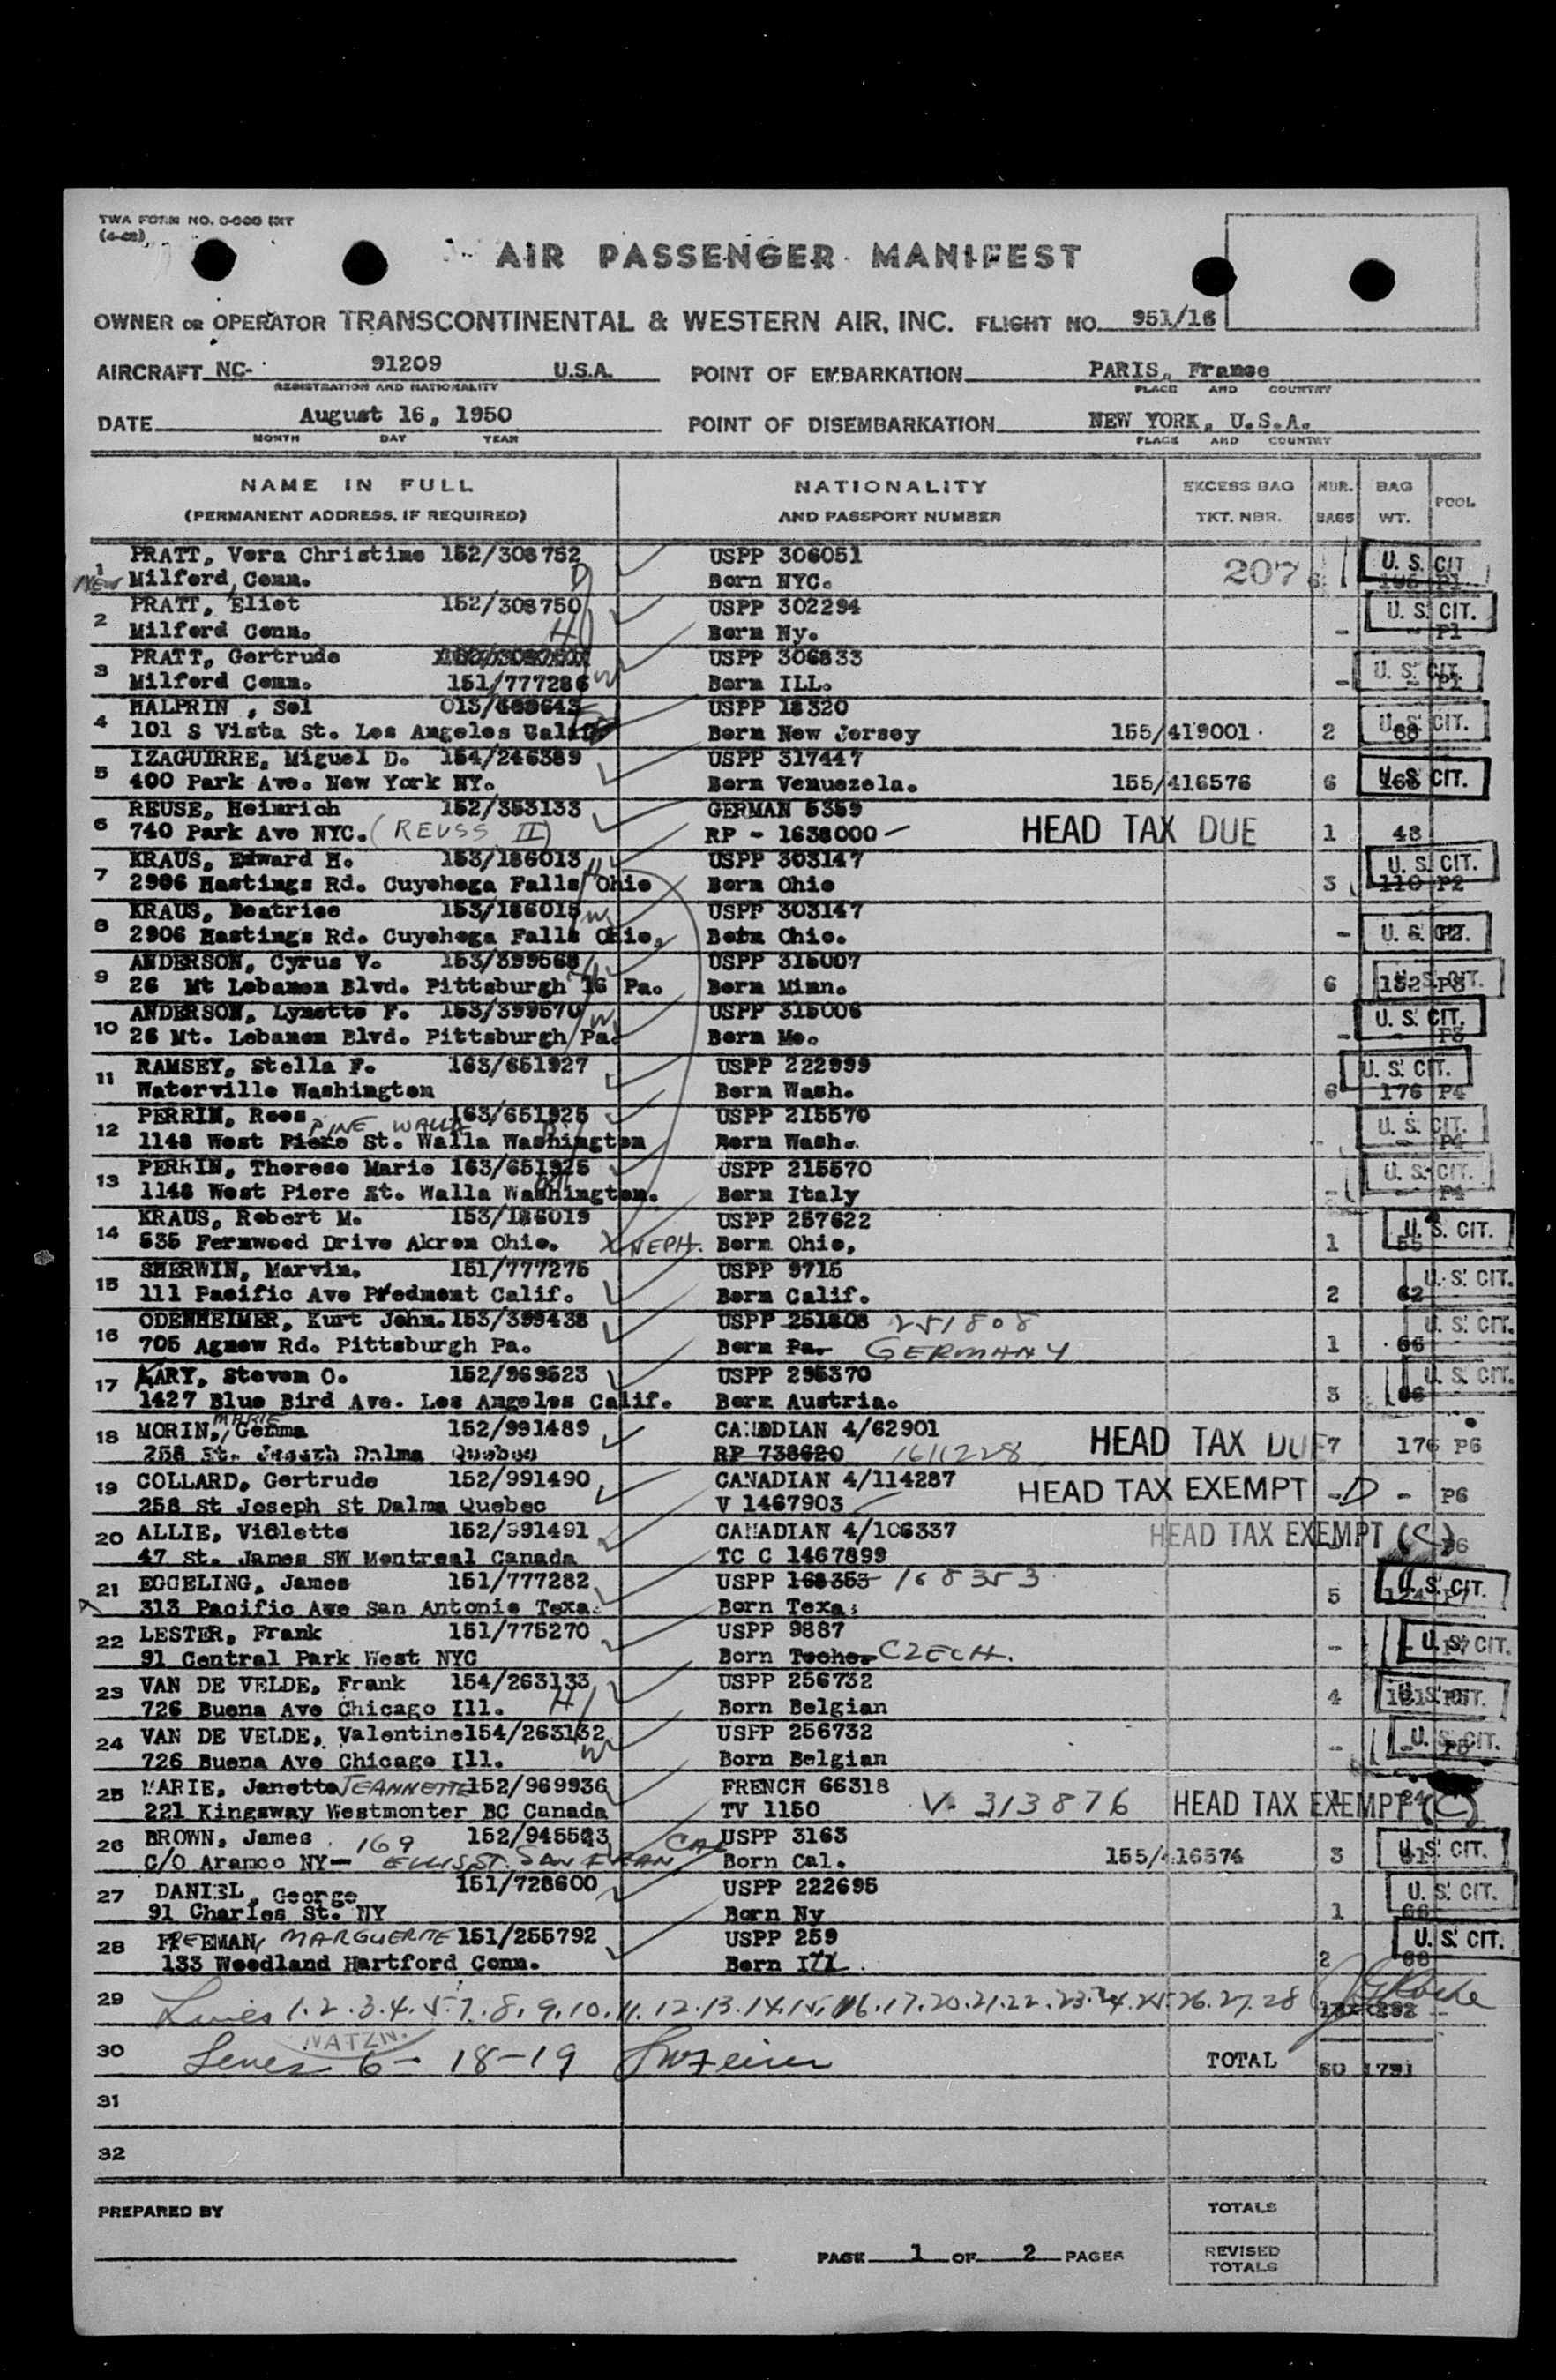 TWA FORM NO. 0-000 INT
AIR PASSENGER MANIFEST
OWNER OR OPERATOR TRANSCONTINENTAL & WESTERN AIR, INC. FLIGHT NO. 951/16
AIRCRAFT NC- 91209 U.S.A. POINT OF EMBARKATION PARIS, France
REGISTRATION AND NATIONALITY PLACE AND COUNTRY
DATE August 16, 1950 POINT OF DISEMBARKATION NEW YORK, U.S.A.
MONTH DAY YEAR PLACE AND COUNTRY
NAME IN FULL NATIONALITY EXCESS BAG NUR. BAG POOL
(PERMANENT ADDRESS, IF REQUIRED) AND PASSPORT NUMBER TKT. NBR. BAGS WT.
1 PRATT, Vera Christine 152/308752 USPP 306051 207 U. S. CIT
NEW Milford, Conn. D Born NYC. 6 P1
2 PRATT, Eliot 152/308750 USPP 302294 U. S. CIT.
Milford Conn. H Born Ny. - - P1
3 PRATT, Gertrude USPP 306833 U. S. CIT.
Milford Conn. 151/777286 W Born ILL. - - P1
4 HALPRIN, Sol USPP 18320 U. S. CIT.
101 S Vista St. Los Angeles Calif Born New Jersey 155/419001 2 68
5 IZAGUIRRE, Miguel D. 154/246389 USPP 317447 U. S. CIT.
400 Park Ave. New York NY. Born Venuezela. 155/416576 6 168
6 REUSE, Heinrich 152/353133 GERMAN 5359
740 Park Ave NYC. (REUSS II) RP - 1638000 HEAD TAX DUE 1 48
7 KRAUS, Edward H. 153/186013 H USPP 303147 U. S. CIT.
2906 Hastings Rd. Cuyohega Falls Ohio Born Ohio 3 110 P2
8 KRAUS, Beatrice 153/186015 W USPP 303147
2906 Hastings Rd. Cuyohega Falls Ohio, Born Ohio. - U. S. CIT. P2
9 ANDERSON, Cyrus V. 153/399568 H USPP 315007
26 Mt Lebanon Blvd. Pittsburgh 16 Pa. Born Minn. 6 132 P3 U. S. CIT.
10 ANDERSON, Lynette F. 153/399570 W USPP 315006 U. S. CIT.
26 Mt. Lebanon Blvd. Pittsburgh Pa. Born Mo. - - P3
11 RAMSEY, Stella F. 163/651927 USPP 222999 U. S. CIT.
Waterville Washington Born Wash. 6 176 P4
12 PERRIN, Rees 163/651926 USPP 215570 U. S. CIT.
PINE WALLA
1148 West Piere St. Walla Washington Born Wash. - - P4
13 PERRIN, Therese Marie 163/651925 USPP 215570 U. S. CIT.
1148 West Piere St. Walla Washington. Born Italy - - P4
14 KRAUS, Robert M. 153/186019 USPP 257622 U. S. CIT.
535 Fernwood Drive Akron Ohio. X NEPH. Born Ohio, 1 55
15 SHERWIN, Marvin. 151/777275 USPP 9715 U. S. CIT.
111 Pacific Ave Piedmont Calif. Born Calif. 2 62
16 ODENHEIMER, Kurt John. 153/399438 USPP 251808 251808 U. S. CIT.
705 Agnew Rd. Pittsburgh Pa. Born Pa. GERMANY 1 66
17 KARY, Steven O. 152/969523 USPP 295370 U. S. CIT.
1427 Blue Bird Ave. Los Angeles Calif. Born Austria. 3 66
18 MORIN, MARIE Gemma 152/991489 CANADIAN 4/62901
258 St. Joseph Dalma Quebec RP 738620 1611228 HEAD TAX DUE 7 176 P6
19 COLLARD, Gertrude 152/991490 CANADIAN 4/114287
258 St Joseph St Dalma Quebec V 1467903 HEAD TAX EXEMPT - D - P6
20 ALLIE, Violette 152/991491 CANADIAN 4/106337 HEAD TAX EXEMPT (C)
47 St. James SW Montreal Canada TC C 1467899 P6
21 EGGELING, James 151/777282 USPP 168353 168353 U. S. CIT.
313 Pacific Ave San Antonio Texas Born Texas 5 124 P7
22 LESTER, Frank 151/775270 USPP 9887 U. S. CIT.
91 Central Park West NYC Born Techer CZECH. - - P7
23 VAN DE VELDE, Frank 154/263133 USPP 256732
726 Buena Ave Chicago Ill. H Born Belgian 4 U. S. CIT.
24 VAN DE VELDE, Valentine 154/263132 USPP 256732 U. S. CIT.
726 Buena Ave Chicago Ill. W Born Belgian - -
25 MARIE, Janette JEANNETTE 152/969936 FRENCH 66318
221 Kingsway Westmonter BC Canada TV 1150 V- 313876 HEAD TAX EXEMPT (C) 24
26 BROWN, James 169 152/945523 USPP 3163 U. S. CIT.
C/O Aramco NY- ELLIS ST. SAN FRAN CAL Born Cal. 155/416574 3 51
27 DANIEL, George 151/728600 USPP 222695 U. S. CIT.
91 Charles St. NY Born Ny 1 66
28 FREEMAN, MARGUERITE 151/255792 USPP 259 U. S. CIT.
133 Woodland Hartford Conn. Born Ill. 2 66
29 Lines 1.2.3.4.5.7.8.9.10.11.12.13.14.15.16.17.20.21.22.23.24.25.26.27.28
NATZN.
30 Lines 6-18-19 TOTAL 60 1791
31
32
PREPARED BY TOTALS
PAGE 1 OF 2 PAGES REVISED
TOTALS